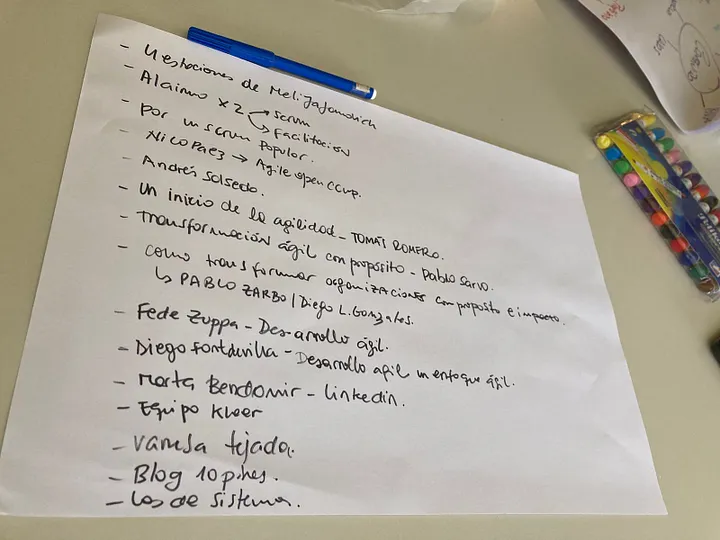 - 4 estaciones de Melijajamovich
- Alaimo x 2 → scrum
→ Facilitación
- por un scrum popular.
- Nico Paez → Agile open ccup.
- Andrés Salsedo.
- Un inicio de la agilidad - TOMÁS ROMERO.
- Transformación ágil con propósito - Pablo Sarvo.
- como transformar organizaciones con proposito e impacto.
↳ PABLO ZARBO / Diego L. Gonzales.
- Fede Zuppa - Desarrollo ágil.
- Diego Fontdevilla - Desarrollo agil un enfoque ágil.
- Marta Bendomir - linkedin.
- Equipo Kleer
- Vanesa tejada.
- Blog 10 pines.
- Los de sistema.